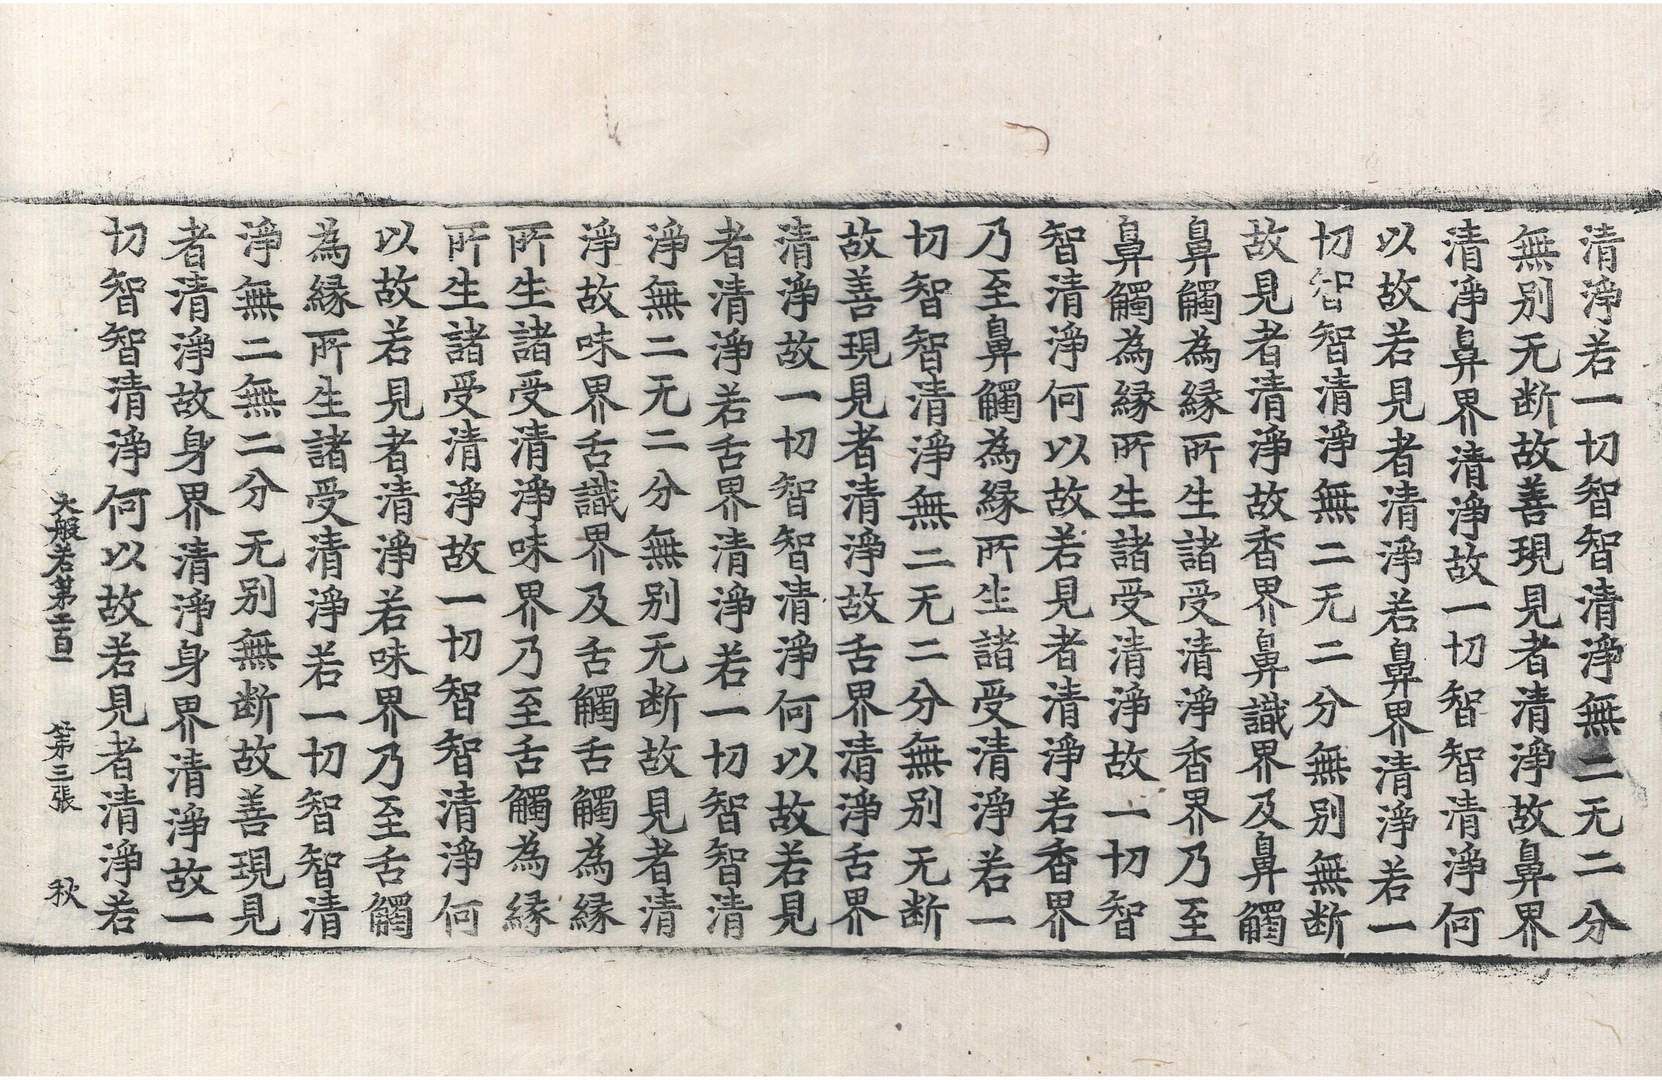 清淨若一切智智清淨無二无二分
無別无断故善現見者清淨故鼻界
清淨鼻界清淨故一切智智清淨何
以故若見者清淨若鼻界清淨若一
切智智清淨無二无二分無別無断
故見者清淨故香界鼻識界及鼻觸
鼻觸為縁所生諸受清淨香界乃至
鼻觸為縁所生諸受清淨故一切智
智清淨何以故若見者清淨若香界
乃至鼻觸為縁所生諸受清淨若一
切智智清淨無二无二分無別无断
故善現見者清淨故舌界清淨舌界
清淨故一切智智清淨何以故若見
者清淨若舌界清淨若一切智智清
淨無二无二分無別无断故見者清
淨故味界舌識界及舌觸舌觸為縁
所生諸受清淨味界乃至舌觸為縁
所生諸受清淨故一切智智清淨何
以故若見者清淨若味界乃至舌觸
為縁所生諸受清淨若一切智智清
淨無二無二分无別無断故善現見
者清淨故身界清淨身界清淨故一
切智智清淨何以故若見者清淨若
大般若第二百一 第三張 秋